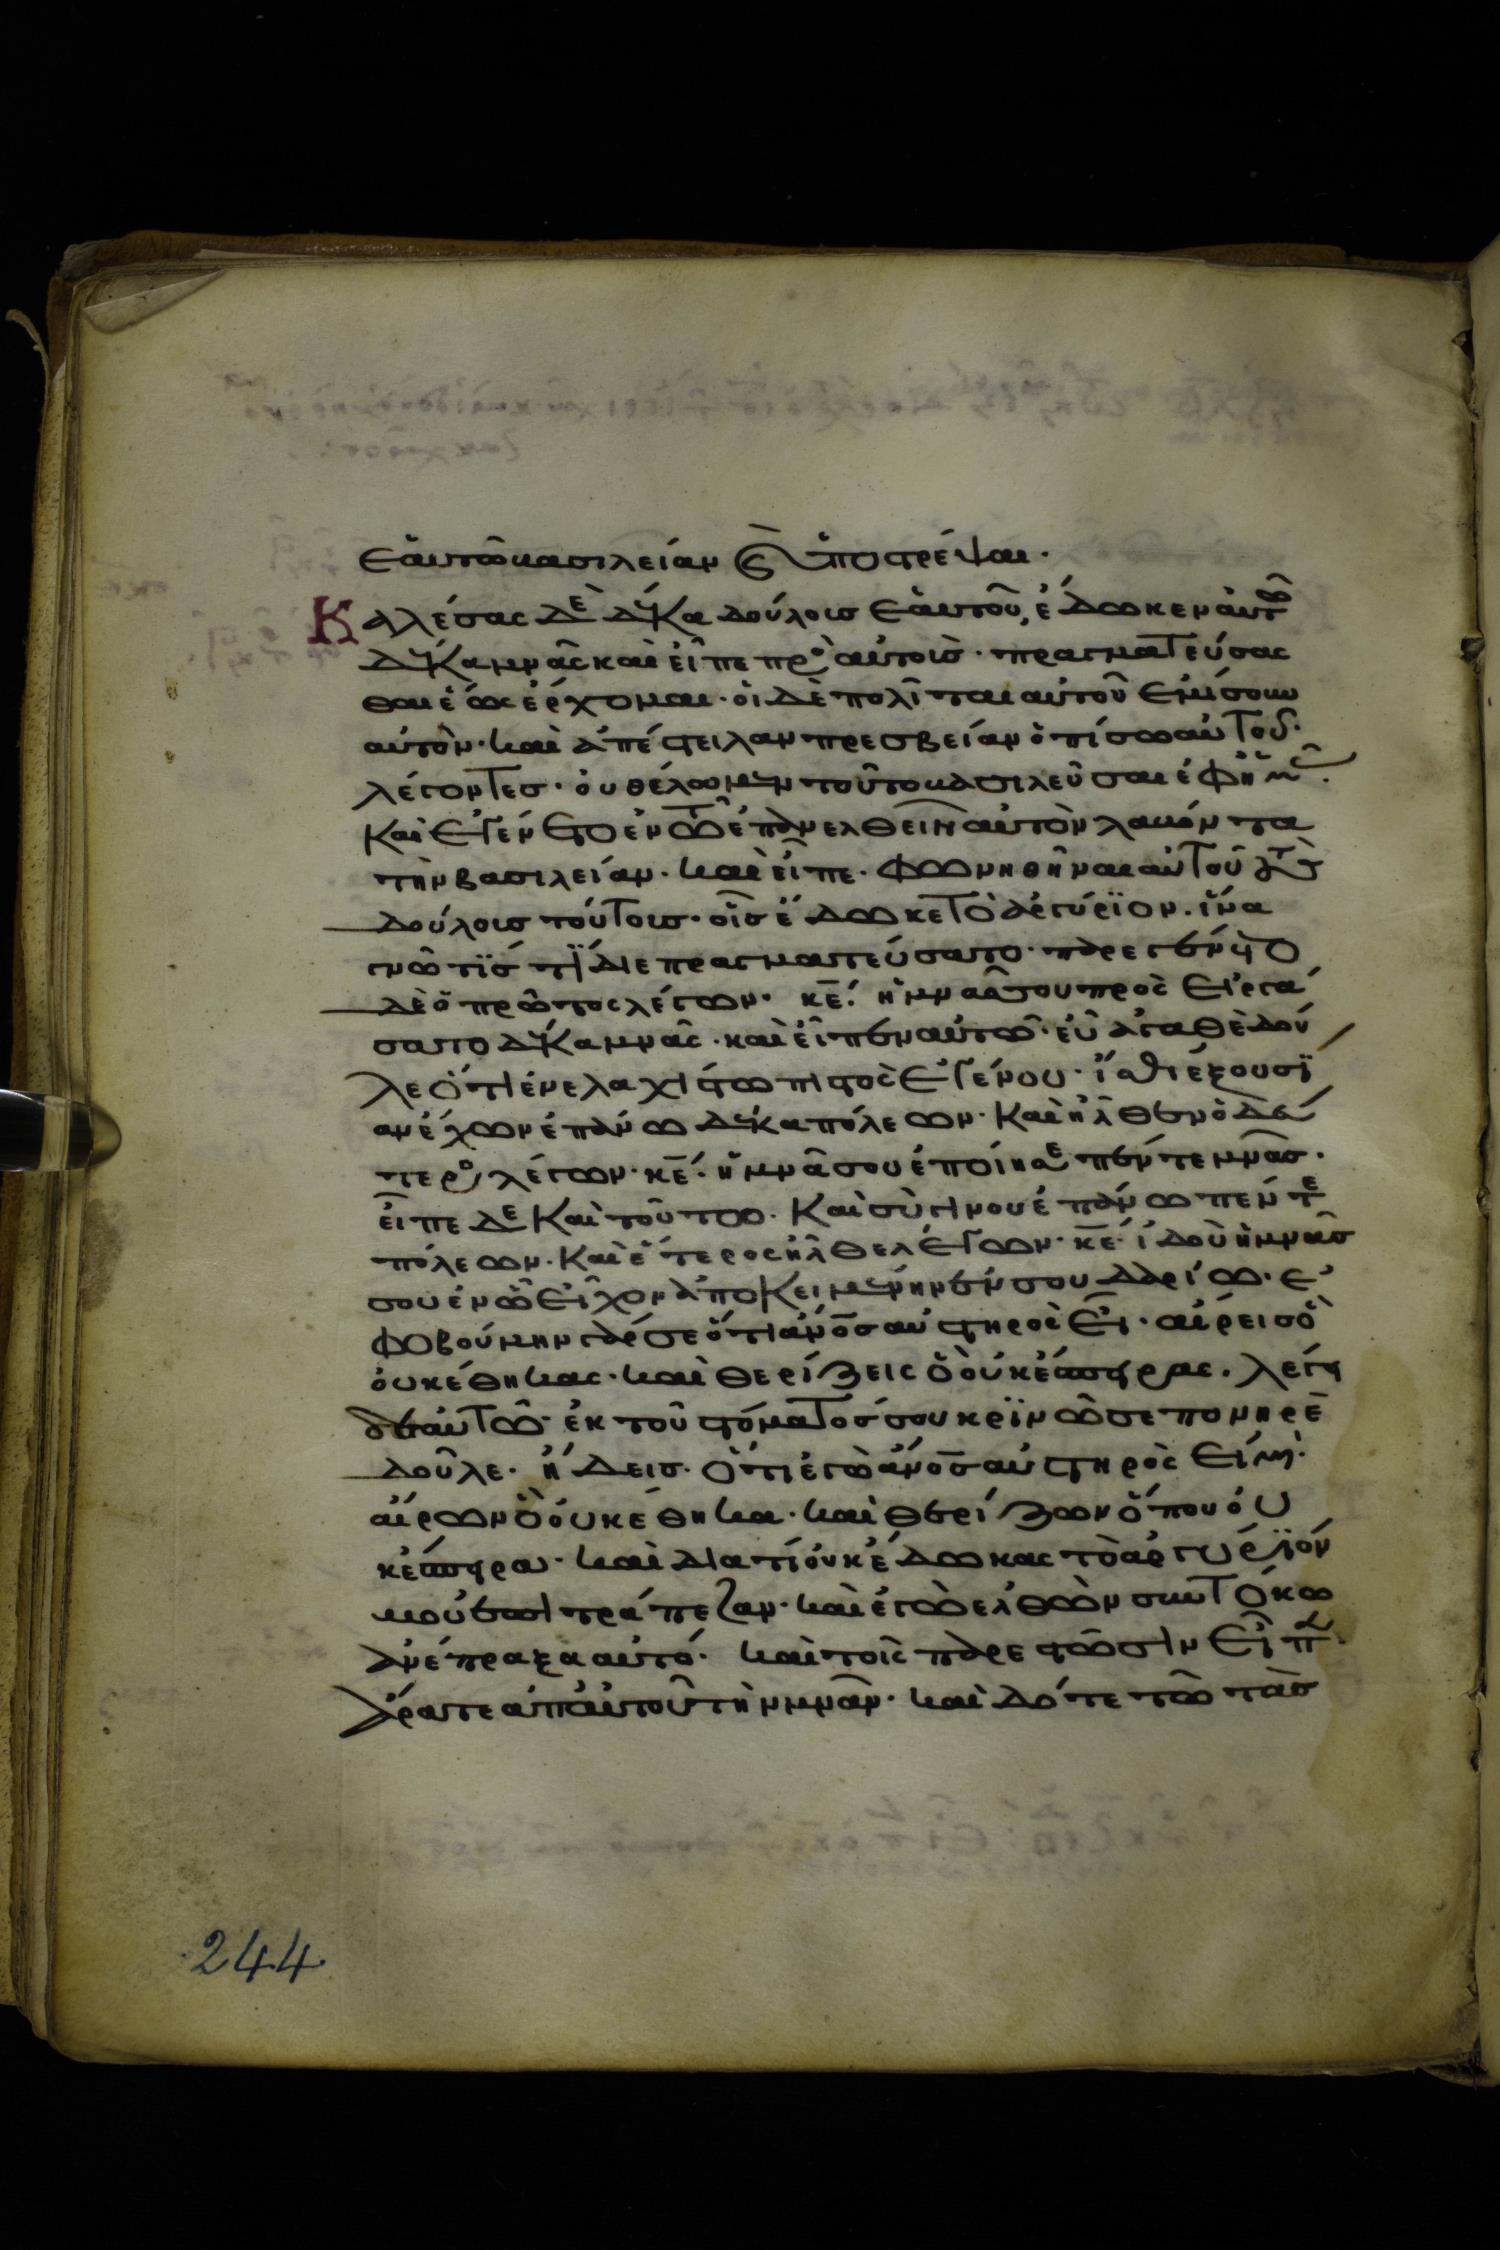 ἑαυτῶ βασιλείαν καὶ ὑποστρέψαι·
Καλέσας δὲ δέκα δούλοισ ἑαυτοῦ, ἔδωκεν αὐτοῖσ
δέκα μνᾶς καὶ εἶπε πρὸ αὐτοισ· πραγματεύσας
θαι ἕως ἔρχομαι· οἱ δὲ πολῖται αὐτοῦ ἐμίσουν
αὐτὸν· καὶ ἀπέστειλαν πρεσβείαν ὀπίσω αὐτοῦ·
λέγοντεσ· οὐ θέλωμεν τοῦτο βασιλεῦσαι ἐφ ἡμᾶσ·
Καὶ ἐγένετο ἐν τῶ ἐπανελθεῖν αὐτὸν λαβόντα
τὴν βασιλείαν· καὶ εἶπε· φωνηθῆναι αὐτοῦ τοὺσ
δούλοισ τούτοισ· οἷσ ἔδωκε τὸ ἀργύριον· ἵνα
γνῶ τίσ τί διεπραγματεύσατο· παρεγένετο
δὲ ὁ πρῶτος λέγων· κε̄· ἡ μνᾶ σου προς εἰργά
σατο δέκα μνᾶς· καὶ εἶπεν αὐτῶ· εὖ ἀγαθὲ δού
λε ὅτι ἐν ἐλαχίστω πιστὸς ἐγένου· ἴσθι ἐξουσί
αν ἔχων ἐπάνω δέκα πόλεων· Καὶ ἦλθεν ὁ δεύ
τερο λέγων· κε̄· ἡ μνᾶ σου ἐποίησε πέντε μνᾶσ·
εἶπε δε Καὶ τοῦτω· Καὶ σὺ γίνου ἐπάνω πέντε
πόλεων· Καὶ ἕτερος ἦλθε λέγων· κε̄· ἰδοὺ ἡ μνᾶσ
σου ἐν ὧ εἶχον ἀποκειμένην ἐν σουδαρίω· ἐ
φοβούμην γάρ σε ὅτι ἀν̄οσ αὐστηρὸς εἶ· αἴρεισ ὃ
οὐκ ἔθηκας· καὶ θερίζεις ὃ οὐκ ἔσπειρας· λέγει
δὲ αὐτῶ· ἐκ τοῦ στόματόσ σου κρίνῶ σε πονηρὲ
δοῦλε· ἤδεισ· ὅτι ἐγὼ ἀν̄οσ αὐστηρὸς εἰμὶ·
αἴρων ὃ οὐκ ἔθηκα· καὶ θερίζων ὅπου οὐ
κ ἔσπειρα· καὶ διατί οὐκ ἔδωκας τὸ ἀργύριόν
μου ἐπὶ τράπεζαν· καὶ ἐγὼ ἐλθὼν σὺν τόκω
ἀνέπραξα αὐτό· καὶ τοῖς παρεστῶσιν εἶπεν·
ἄρατε ἀπ αὐτοῦ τὴν μνᾶν· καὶ δότε τῶ τὰσ
244